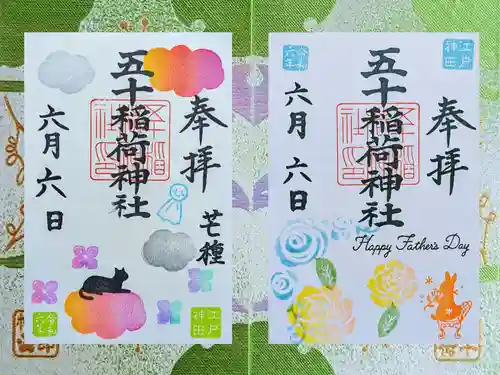 奉拝
五十稲荷神社
六月六日
芒種
江戸
神田
令和
六年
奉拝
五十稲荷神社
六月六日
Happy Father's Day
江戸
神田
令和
六年